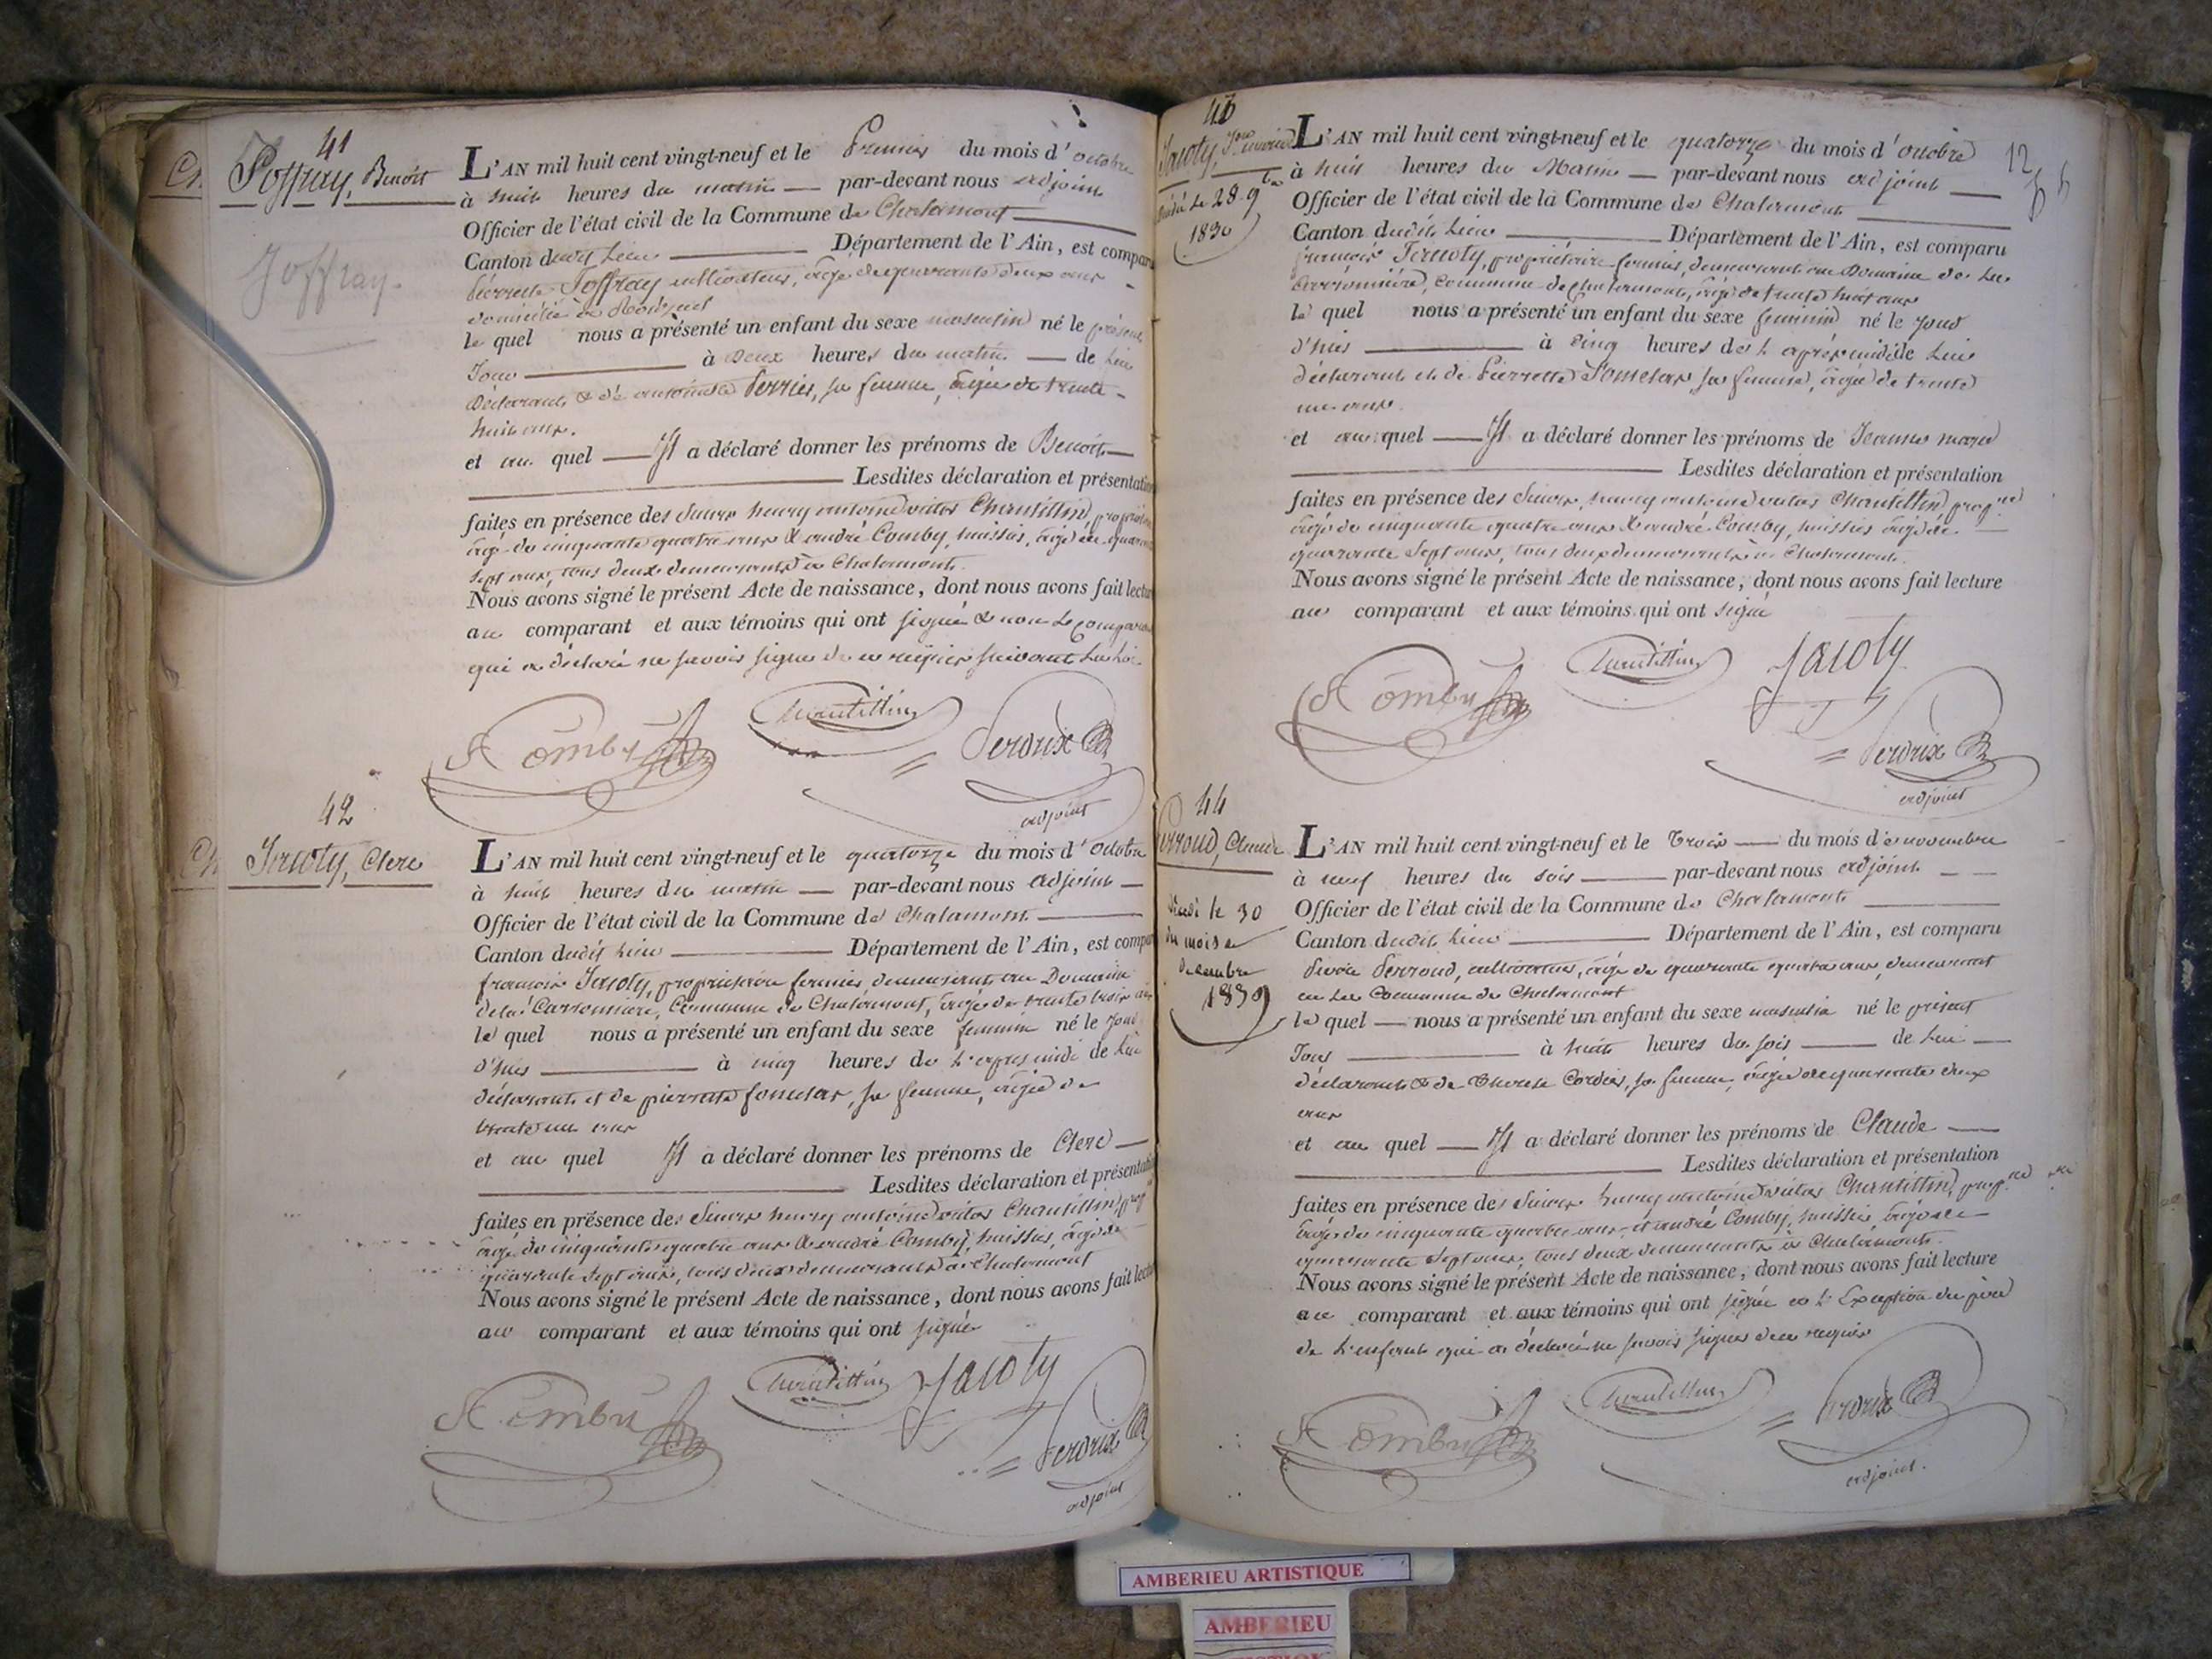 41
Joffray, Benoit
Joffray.
L'AN mil huit cent vingt-neuf et le Premier du mois d'octobre
à huit heures du matin par-devant nous adjoint
Officier de l'état civil de la Commune de Chalamont
Canton dudit Lieu Département de l'Ain, est comparu
Joffray cultivateur, âgé de quarante deux ans
domicilié à
le quel nous a présenté un enfant du sexe masculin né le présent
Jour à Deux heures du matin de lui
Déclarant & de antoinette Perrier, sa femme, âgée de trente
huit ans.
et au quel Il a déclaré donner les prénoms de Benoit
Lesdites déclaration et présentation
faites en présence des Sieurs henry antoine victor Chantillin, propriétaire
âgé de cinquante quatre ans & andré Comby, huissier, âgé de quarante
sept ans, tous deux demeurants à Chalamont.
Nous avons signé le présent Acte de naissance, dont nous avons fait lecture
au comparant et aux témoins qui ont signé & non le comparant
qui a déclaré ne savoir signer de ce requier suivant la loi
A Comby
Chantillin
Perdrix
adjoint
42
Jacoty, Clerc
L'AN mil huit cent vingt-neuf et le quatorze du mois d'octobre
à huit heures du matin par-devant nous adjoint
Officier de l'état civil de la Commune de Chalamont
Canton dudit Lieu Département de l'Ain, est comparu
françois Jacoty, propriétaire fermier, demeurant au Domaine
de la Carronnière, Commune de Chalamont, âgé de trente huit ans
le quel nous a présenté un enfant du sexe feminin né le jour
d'hier à cinq heures de l'apres midi de lui
déclarant et de pierrette fometar, sa femme, âgée de
trente un ans
et au quel Il a déclaré donner les prénoms de Clerc
Lesdites déclaration et présentation
faites en présence des Sieurs henry antoine victor Chantillin, prop
âgé de cinquante quatre ans & andré Comby, huissier, âgé de
quarante sept ans, tous deux demeurants à Chalamont
Nous avons signé le présent Acte de naissance, dont nous avons fait lecture
au comparant et aux témoins qui ont signé
A Comby
Chantillin
Jacoty
Perdrix
adjoint
43
Jacoty, Jne marie
Décédé le 28 9bre
1830
12
L'AN mil huit cent vingt-neuf et le quatorze du mois d'octobre
à huit heures du Matin par-devant nous adjoint
Officier de l'état civil de la Commune de Chalamont
Canton dudit Lieu Département de l'Ain, est comparu
françois Jacoty, propriétaire fermier, demeurant au Domaine de la
Carronnière, Commune de Chalamont, âgé de trente huit ans
le quel nous a présenté un enfant du sexe feminin né le jour
d'hier à cinq heures de l'après midi de lui
déclarant et de Pierrette Fometar sa femme, âgée de trente
un ans.
et au quel Il a déclaré donner les prénoms de Jeanne marie
Lesdites déclaration et présentation
faites en présence des Sieurs henry antoine victor Chantillin propre
âgé de cinquante quatre ans & andré Comby, huissier âgé de
quarante sept ans, tous deux demeurants à Chalamont.
Nous avons signé le présent Acte de naissance, dont nous avons fait lecture
au comparant et aux témoins qui ont signé
A Comby
Chantillin
Jacoty
Perdrix
adjoint
44
Perroud, Claude
Décédé le 30
du mois de
decembre
1839
L'AN mil huit cent vingt-neuf et le Trois du mois de novembre
à neuf heures du soir par-devant nous adjoint
Officier de l'état civil de la Commune de Chalamont
Canton dudit Lieu Département de l'Ain, est comparu
Perroud, cultivateur, âgé de quarante quatre ans, demeurant
en la Commune de Chalamont
le quel nous a présenté un enfant du sexe masculin né le présent
Jour à huit heures du soir de lui
déclarant & de Cordier, sa femme, âgée de quarante deux
ans
et au quel Il a déclaré donner les prénoms de Claude
Lesdites déclaration et présentation
faites en présence des Sieurs henry antoine victor Chantillin, propre
âgé de cinquante quatre ans, et andré Comby, huissier, âgé de
quarante sept ans, tous deux demeurants à Chalamont.
Nous avons signé le présent Acte de naissance, dont nous avons fait lecture
au comparant et aux témoins qui ont signé à l'Exception du père
de l'enfant qui a déclaré ne savoir signer de ce requis
A Comby
Chantillin
Perdrix
adjoint.
AMBERIEU ARTISTIQUE
AMBERIEU